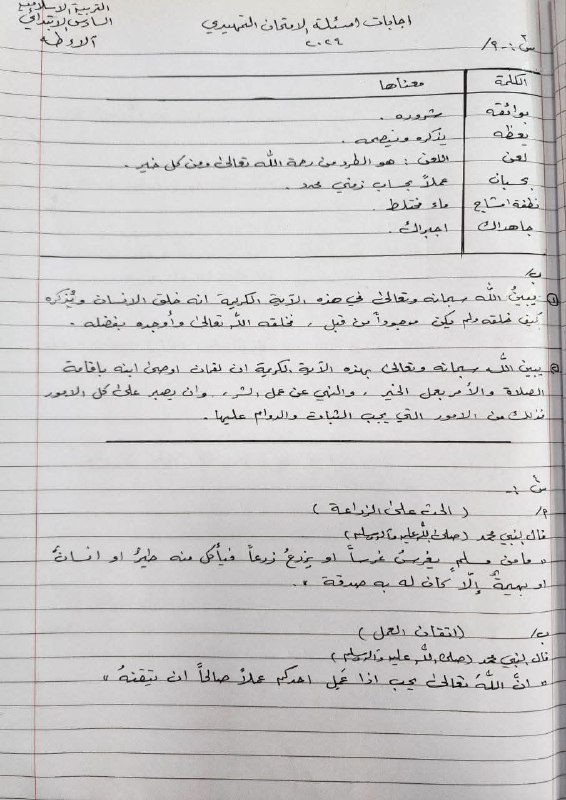 التربية الاسلامية
السادس الابتدائي
اجابات اسئلة الامتحان التمهيدي
٢٠٢٤
الكلمة معناها
بوائقه شروره .
يعظه يذكره وينصحه .
لعن اللعن : هو الطرد من رحمة الله تعالى ومن كل خير .
بحسبان عملاً بحساب زمني محدد .
نطفة امشاج ماء مختلط .
جاهداك اجبراك .
ب/
① يبينُ الله سبحانه وتعالى في هذه الآية الكريمة انه خلق الانسان ويُذكره
كيف خلقه ولم يكن موجوداً من قبل , فخلقه الله تعالى وأوجده بفضله .
② يبين الله سبحانه وتعالى بهذه الآية الكريمة ان لقمان اوصى ابنه بإقامة
الصلاة والأمر بعمل الخير , والنهي عن عمل الشر , وان يصبر على كل الامور
فذلك من الامور التي يجب الثبات والدوام عليها .
( الحث على الزراعة )
قال النبي محمد (صلى الله عليه وآله وسلم)
" ما من مسلم يغرسُ غرساً او يزرعُ زرعاً فيأكل منه طيرٌ او انسانٌ
او بهيمةٌ إلّا كان له به صدقة " .
ب/ (أتقان العمل)
قال النبي محمد (صلى الله عليه وآله وسلم)
" انَّ اللهَ تعالى يحب اذا عَمِل احدكم عملاً صالحاً ان يتقنهُ "